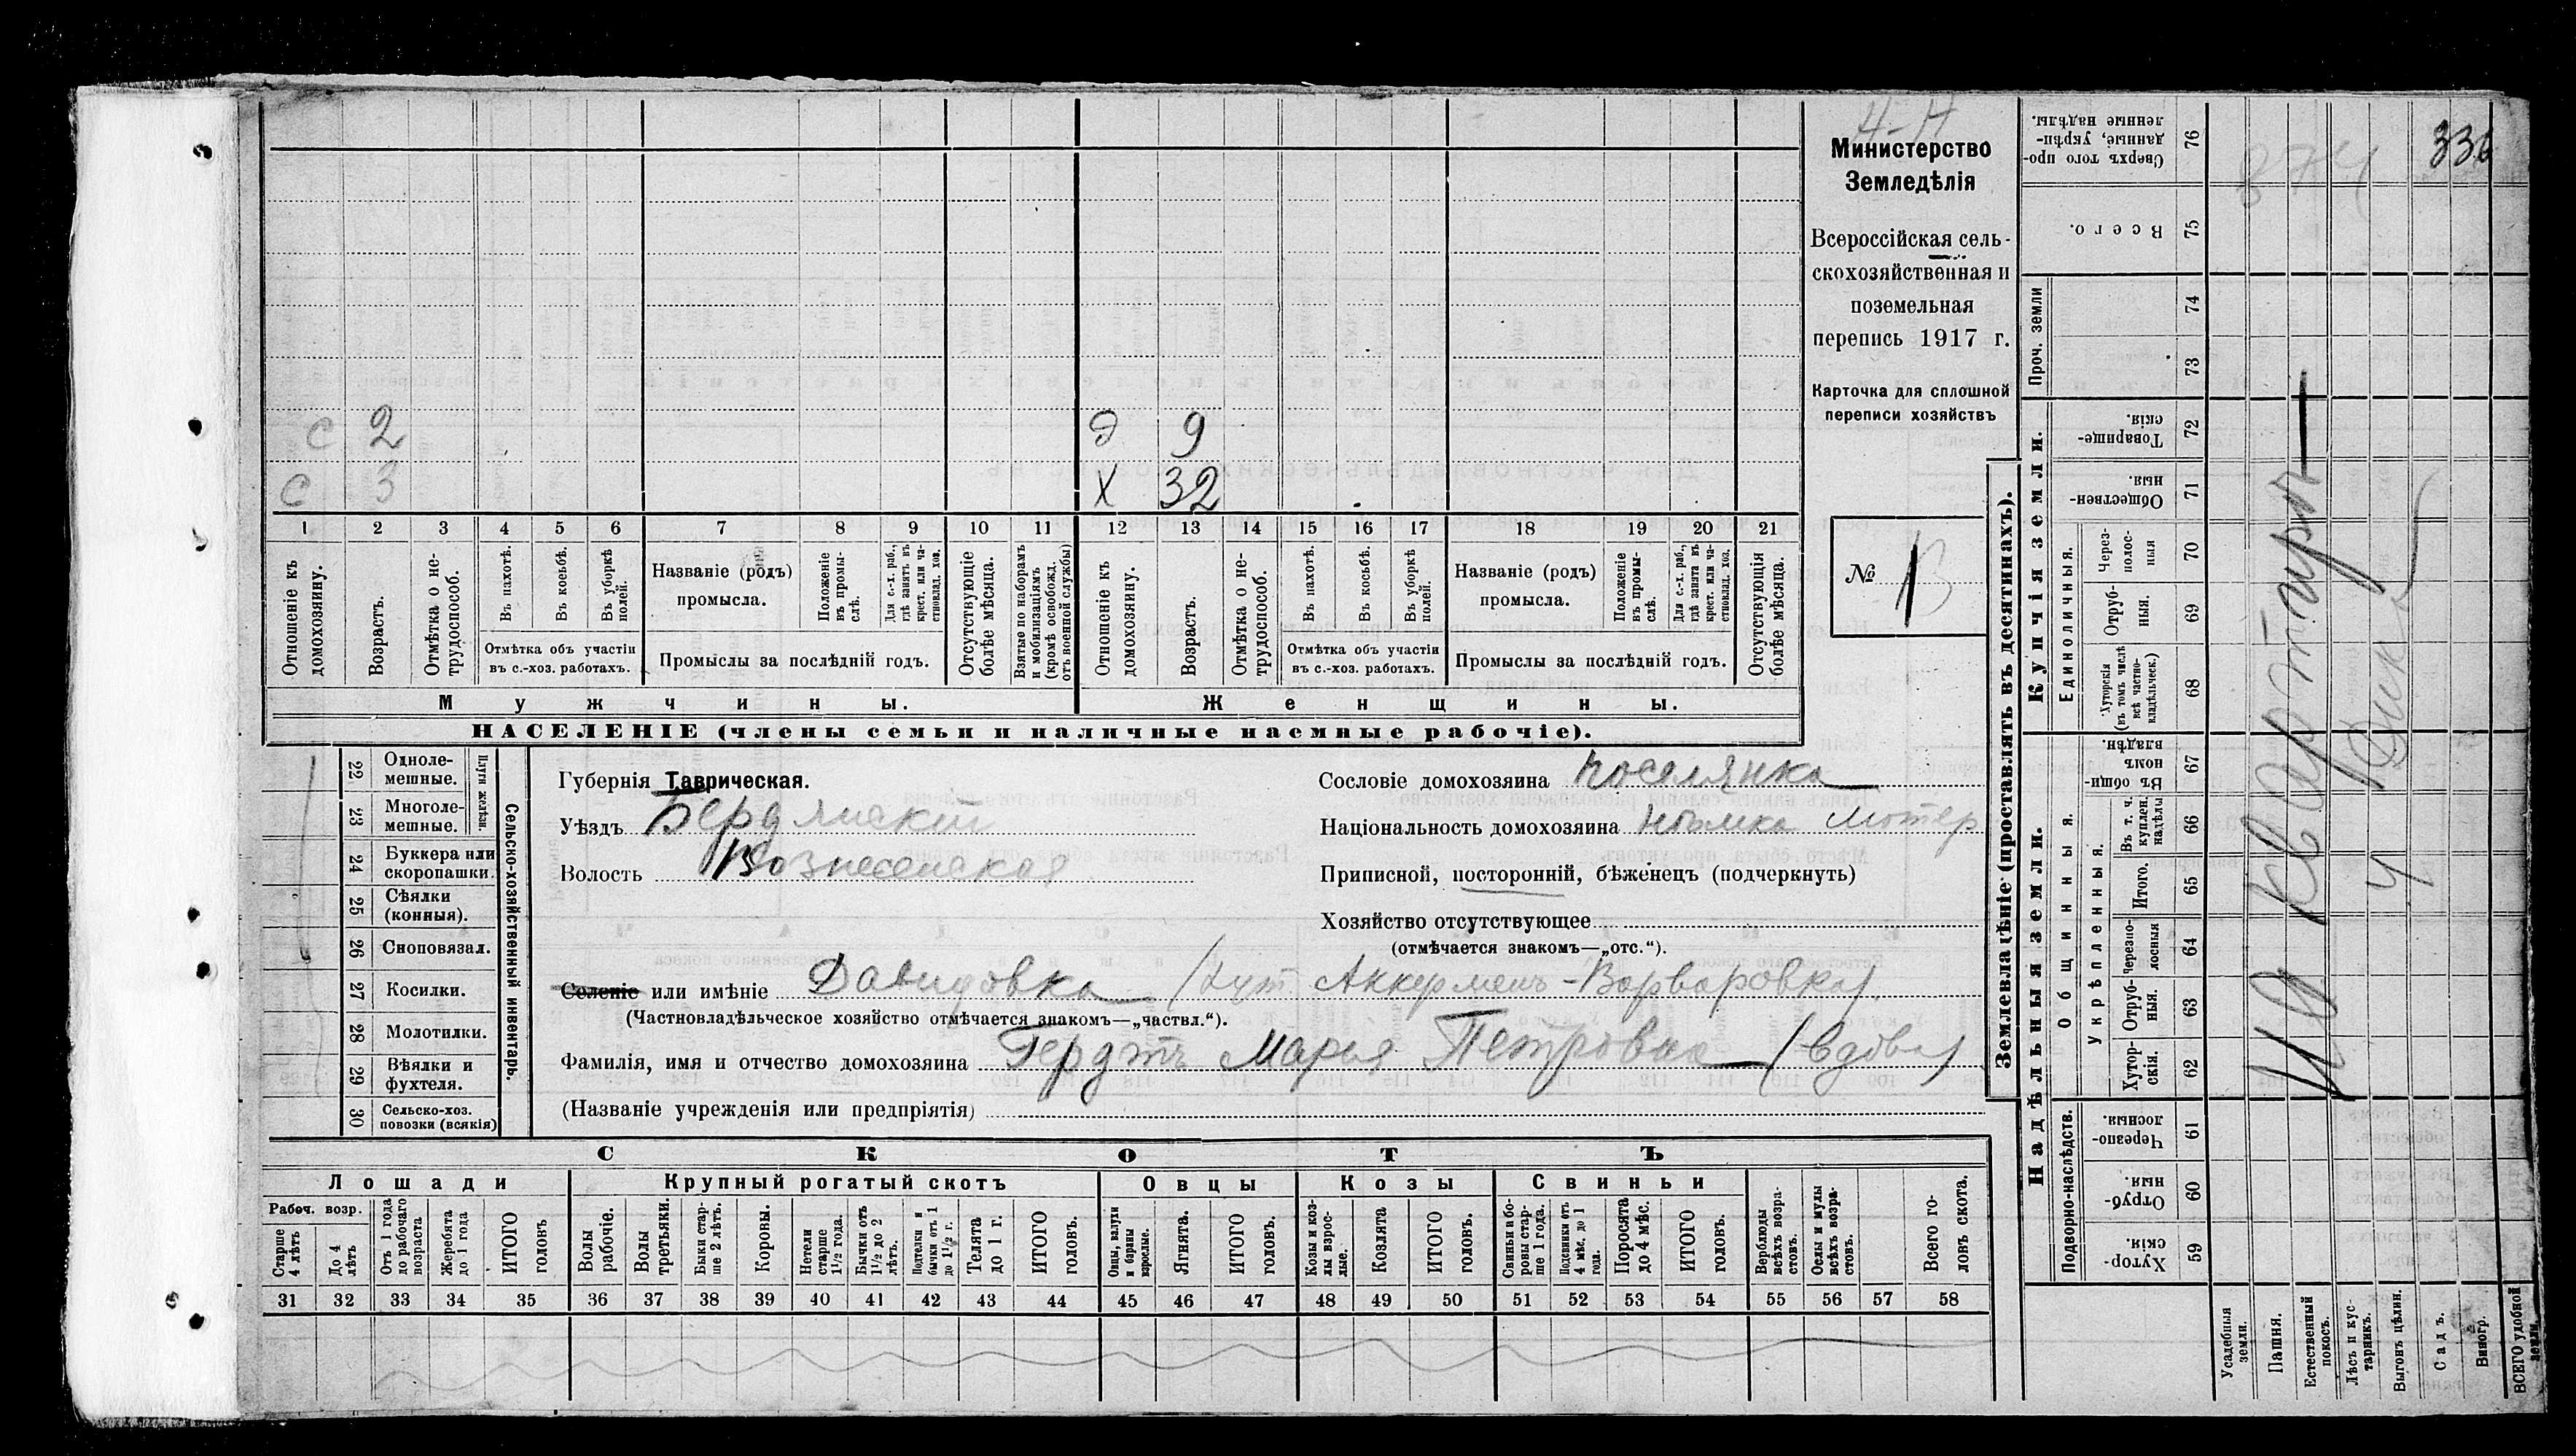 4-Н
336
874
Министерство
Земледѣлія
Всероссійская сель-
скохозяйственная и
поземельная
перепись 1917 г.
Карточка для сплошной
переписи хозяйствъ
№ 13
с 2 д 9
с 3 х 32
1 2 3 4 5 6 7 8 9 10 11 12 13 14 15 16 17 18 19 20 21
Отношеніе къ домохозяину.
Возрастъ.
Отмѣтка о не-трудоспособ.
Въ пахотѣ.
Въ косьбѣ.
Въ уборкѣ полей.
Отмѣтка объ участіи въ с.-хоз. работахъ.
Названіе (родъ) промысла.
Положеніе въ промы-слѣ.
Для с.-х. раб., гдѣ занятъ въ крест. или ча-стновлад. хоз.
Промыслы за послѣдній годъ.
Отсутствующіе болѣе мѣсяца.
Взятые по наборамъ и мобилизаціямъ (кромѣ освобожд. отъ военной службы)
Отношеніе къ домохозяину.
Возрастъ.
Отмѣтка о не-трудоспособ.
Въ пахотѣ.
Въ косьбѣ.
Въ уборкѣ полей.
Отмѣтка объ участіи въ с.-хоз. работахъ.
Названіе (родъ) промысла.
Положеніе въ промы-слѣ.
Для с.-х. раб., гдѣ занята въ крест. или ча-стновлад. хоз.
Промыслы за послѣдній годъ.
Отсутствующія болѣе мѣсяца.
Мужчины. Женщины.
НАСЕЛЕНІЕ (члены семьи и наличные наемные рабочіе).
Сельско-хозяйственный инвентарь.
Плуги желѣзн.
22 Одноле-мешные.
23 Многоле-мешные.
24 Буккера или скоропашки.
25 Сѣялки (конныя).
26 Сноповязал.
27 Косилки.
28 Молотилки.
29 Вѣялки и фухтеля.
30 Сельско-хоз. повозки (всякія)
Губернія Таврическая.
Уѣздъ Бердянскій
Волость Вознесенская
Сословіе домохозяина поселянка
Національность домохозяина нѣмка лютер
Приписной, посторонній, бѣженецъ (подчеркнуть)
Хозяйство отсутствующее
(отмѣчается знакомъ—„отс.“).
Селеніе или имѣніе Давидовка (хут. Аккермень-Варваровка).
(Частновладѣльческое хозяйство отмѣчается знакомъ—„частвл.“).
Фамилія, имя и отчество домохозяина Гердтъ Марья Петровна (вдова)
(Названіе учрежденія или предпріятія)
СКОТЪ
Лошади Крупный рогатый скотъ Овцы Козы Свиньи
Рабоч. возр.
Старше 4 лѣтъ
До 4 лѣтъ
Отъ 1 года до рабочаго возраста
Жеребята до 1 года
ИТОГО головъ
Волы рабочіе.
Волы третьяки.
Быки стар-ше 2 лѣтъ.
Коровы.
Нетели старше 1½ года.
Бычки отъ 1½ до 2 лѣтъ.
Подтелки и бычки отъ 1 до 1½ г.
Телята до 1 г.
ИТОГО головъ.
Овцы, валухи и бараны взрослые.
Ягнята.
ИТОГО головъ.
Козы и коз-лы взрос-лые.
Козлята
ИТОГО головъ.
Свиньи и бо-ровы стар-ше 1 года.
Подсвинки отъ 4 мѣс. до 1 года.
Поросята до 4 мѣс.
ИТОГО головъ.
Верблюды всѣхъ возра-стовъ.
Ослы и мулы всѣхъ возра-стовъ.
Всего го-ловъ скота.
31 32 33 34 35 36 37 38 39 40 41 42 43 44 45 46 47 48 49 50 51 52 53 54 55 56 57 58
Землевладѣніе (проставлять въ десятинахъ).
Сверхъ того про-данные, укрѣп-ленные надѣлы. 76
Всего. 75
Проч. земли
74
73
Купчія земли.
Товарище-скія. 72
Обществен-ныя. 71
Единоличныя.
Через-полос-ныя 70
Отруб-ныя. 69
Хуторскія (въ томъ числѣ всѣ частно-владѣльческ.) 68
Надѣльныя земли.
Общинныя.
Въ общин-номъ владѣн. 67
Укрѣпленныя.
Въ т. ч. куплен. надѣлы 66
Итого. 65
Черезпо-лосныя 64
Отруб-ныя. 63
Хутор-скія. 62
Подворно-наслѣдств.
Черезпо-лосныя. 61
Отруб-ныя. 60
Хутор-скія. 59
Усадебныя земли.
Пашня.
Естественный покосъ.
Лѣсъ и кус-тарникъ.
Выгонъ цѣлин.
Садъ.
Виногр.
ВСЕГО удобной земли.
на квартирѣ
у